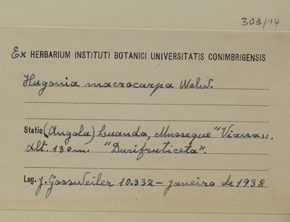 303/14
Ex HERBARIUM INSTITUTI BOTANICI UNIVERSITATIS CONIMBRIGENSIS
Hugonia macrocarpa Welw.
Statio (Angola) Luanda, Musseque "Viana".
Alt. 130 m. "Durifruticeta".
Leg. J. Gossweiler 10.332 - janeiro de 1938